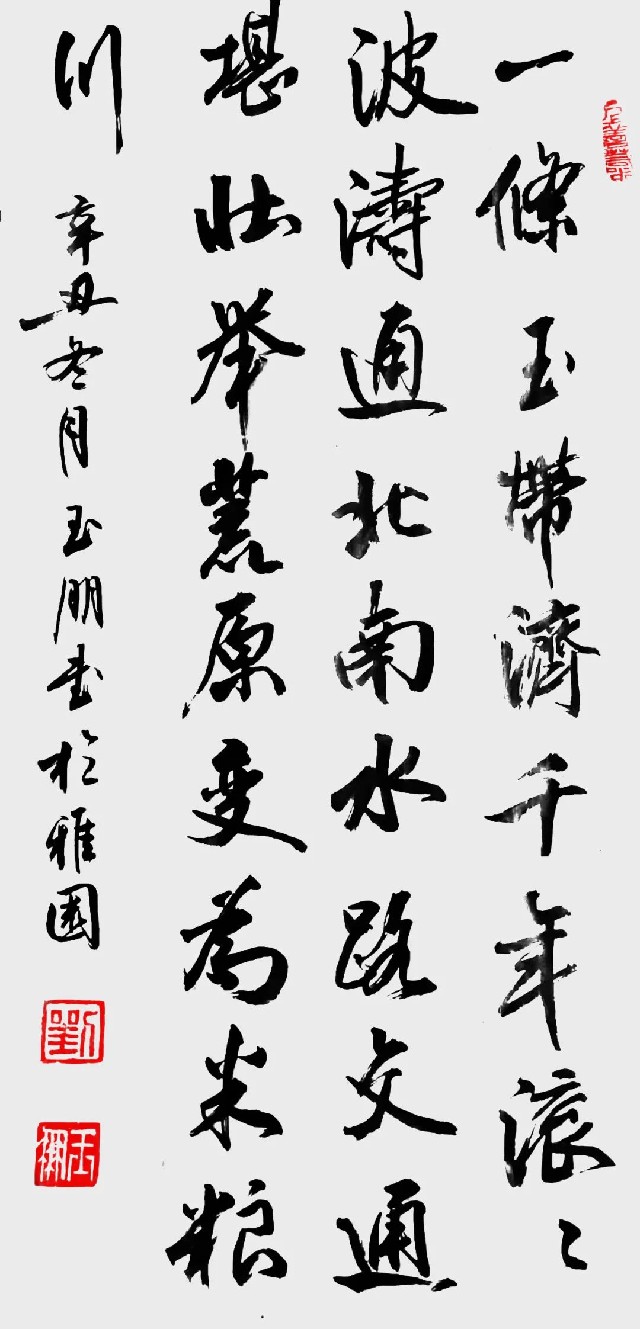 一條玉帶濟千年滾〻
波濤通北南水路交通
堪壯舉荒原变為米粮
川
辛丑冬月玉朋书於雅園
劉
玉朋